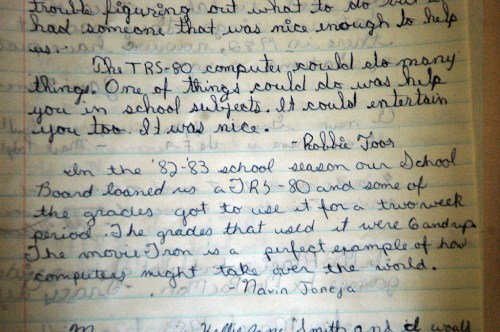 trouble figuring out what to do
had someone that was nice enough to help
us.
The TRS-80 computer could do many
things. One of things could do was help
you in school subjects. It could entertain
you too. It was nice.
- Robbie Toor
In the '82-'83 school season our School
Board loaned us a TRS-80 and some of
the grades got to use it for a two week
period. The grades that used it were 6 and up.
The movie Tron is a perfect example of how
computers might take over the world.
- Navin Joneja
Smith and